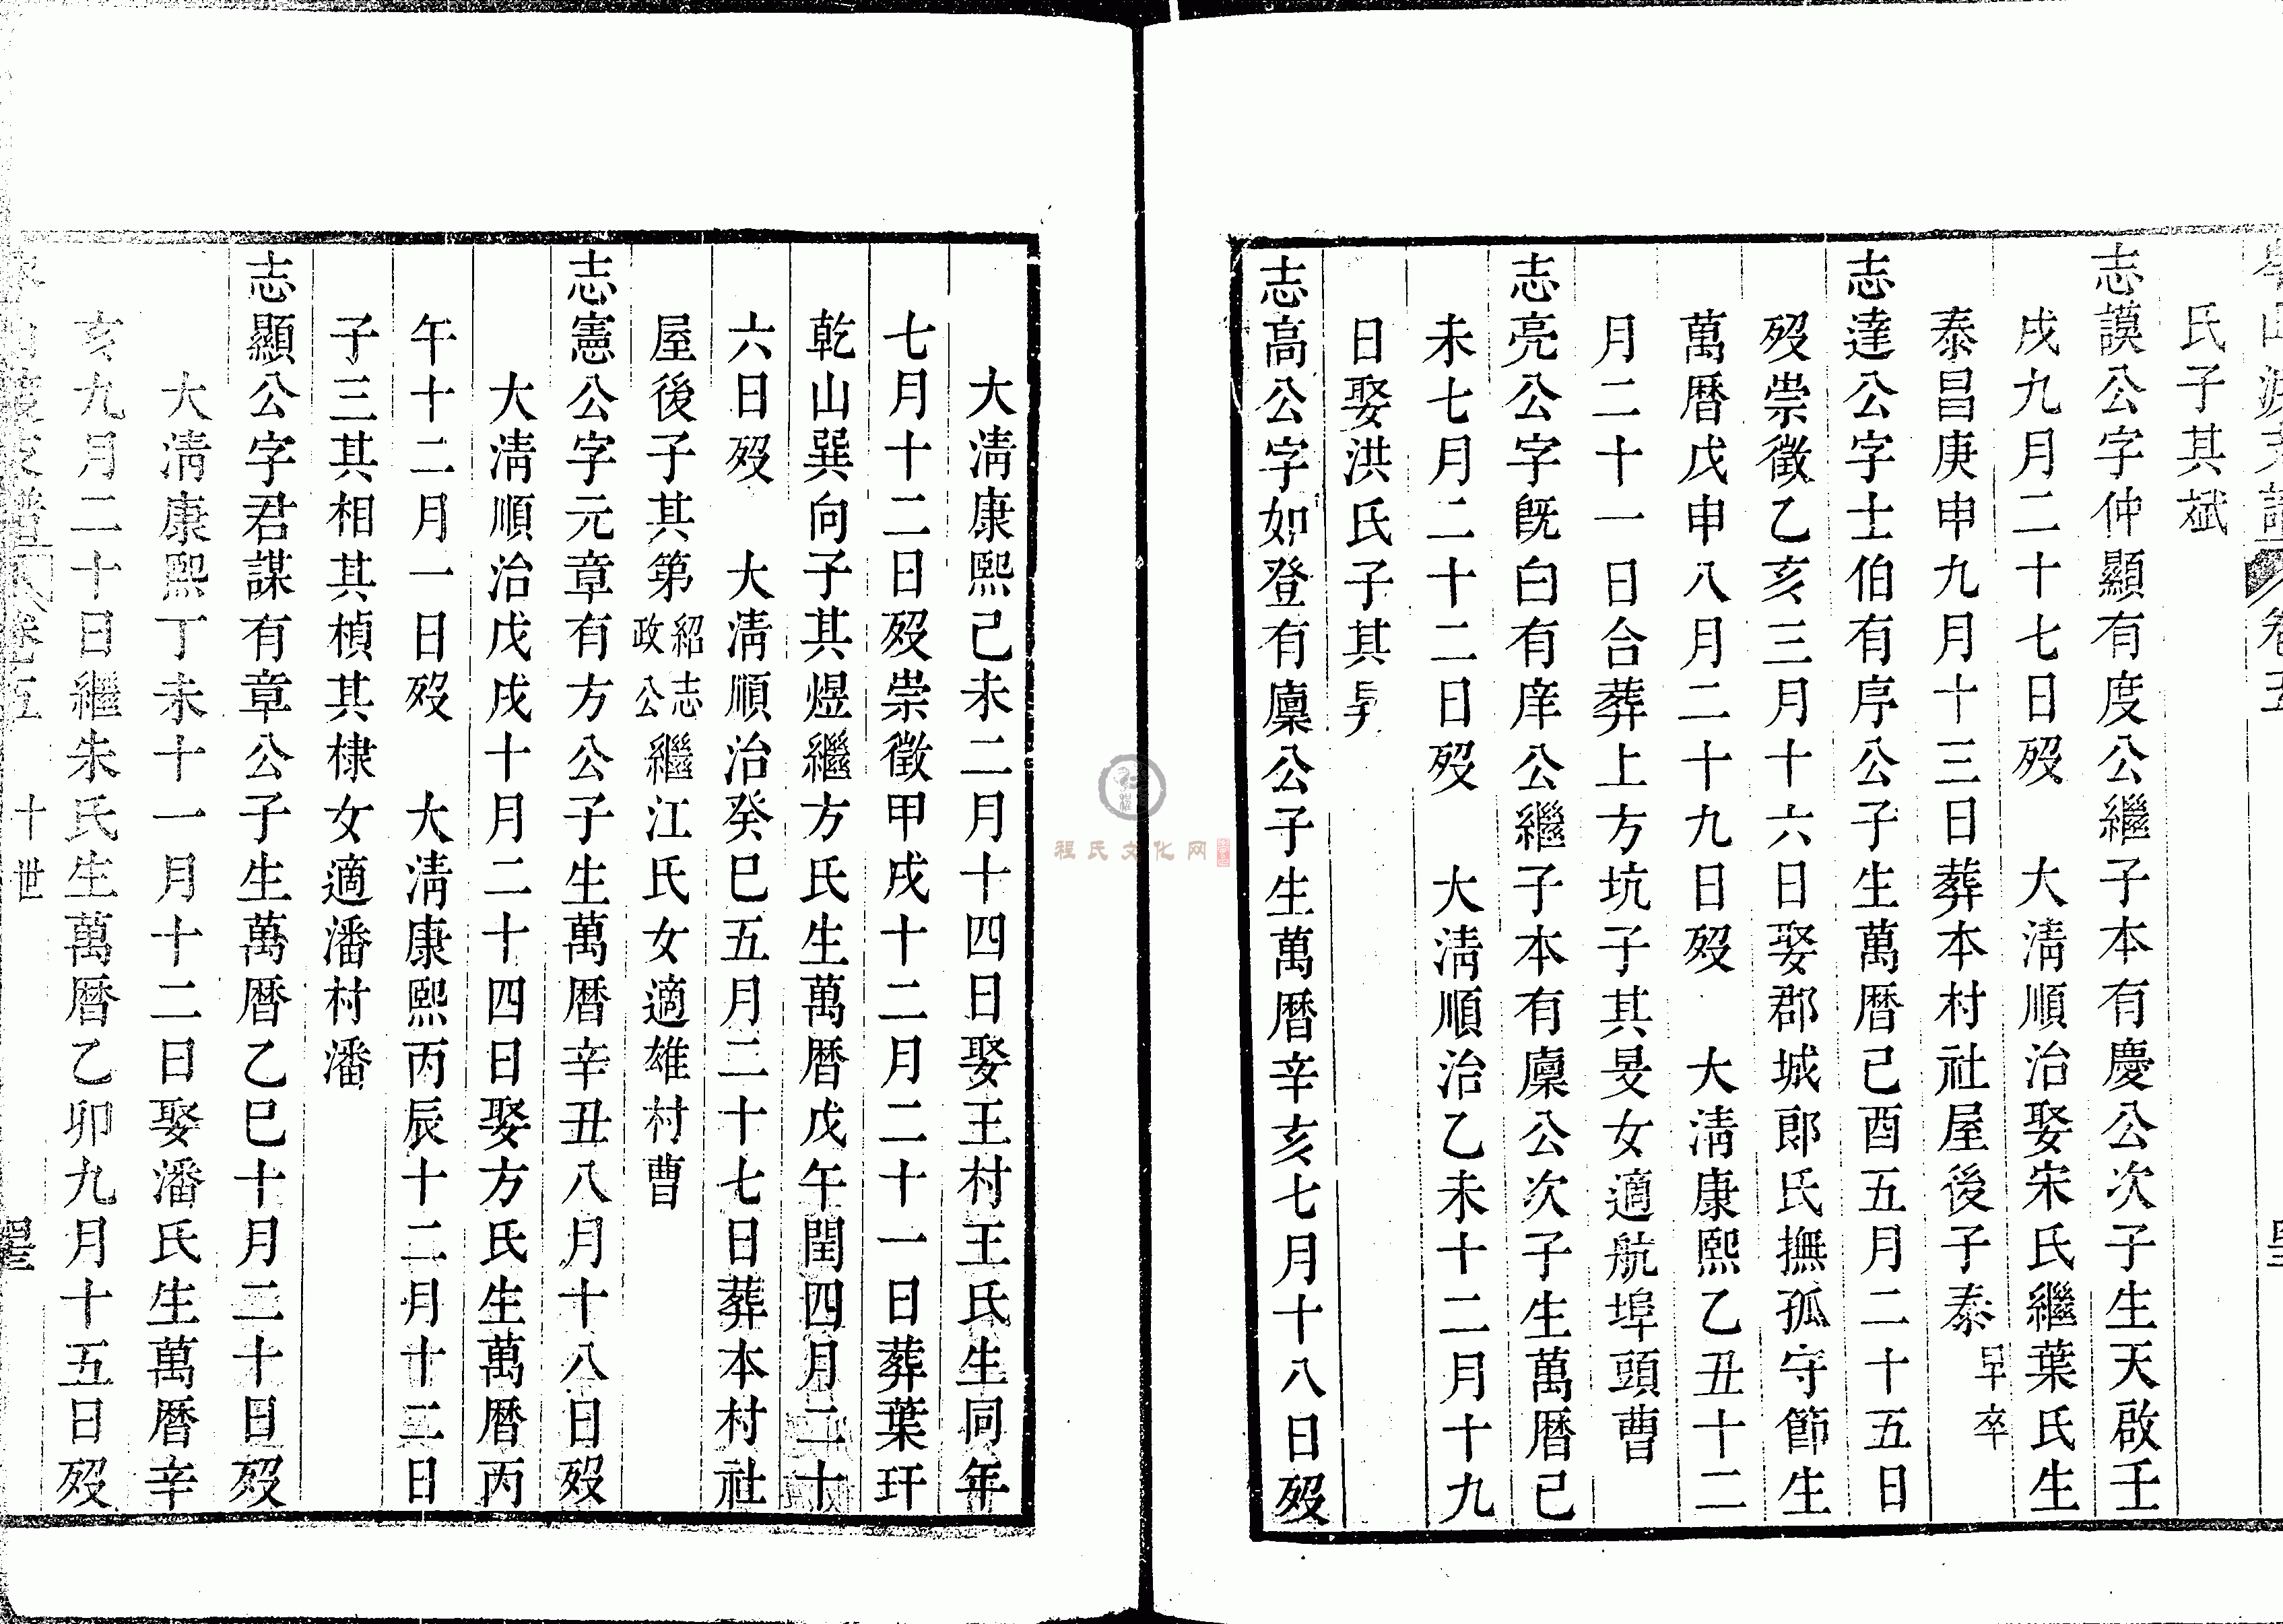 氏子其斌
志謨公字仲顯有度公繼子本有慶公次子生天啟壬
戌九月二十七日歿　大淸順治娶宋氏繼葉氏生
泰昌庚申九月十三日葬本村社屋後子泰早卒
志達公字士伯有序公子生萬曆己酉五月二十五日
歿崇徵乙亥三月十六日娶郡城郎氏撫孤守節生
萬曆戊申八月二十九日歿　大淸康熙乙丑十二
月二十一日合葬上方坑子其旻女適航埠頭曹
志亮公字旣白有庠公繼子本有廩公次子生萬曆己
未七月二十二日歿　大淸順治乙未十二月十九
日娶洪氏子其昴
志高公字如登有廩公子生萬曆辛亥七月十八日歿
大淸康熙己未二月十四日娶王村王氏生同年
七月十二日歿崇徵甲戌十二月二十一日葬葉玕
乾山巽向子其煜繼方氏生萬曆戊午閏四月二十
六日歿　大淸順治癸巳五月二十七日葬本村社
屋後子其第紹志政公繼江氏女適雄村曹
志憲公字元章有方公子生萬曆辛丑八月十八日歿
大淸順治戊戌十月二十四日娶方氏生萬曆丙
午十二月一日歿　大淸康熙丙辰十二月十二日
子三其相其楨其棣女適潘村潘
志顯公字君謀有章公子生萬曆乙巳十月二十日歿
大淸康熙丁未十一月十二日娶潘氏生萬曆辛
亥九月二十日繼朱氏生萬曆乙卯九月十五日歿
支譜　卷五　十世
程氏文化网